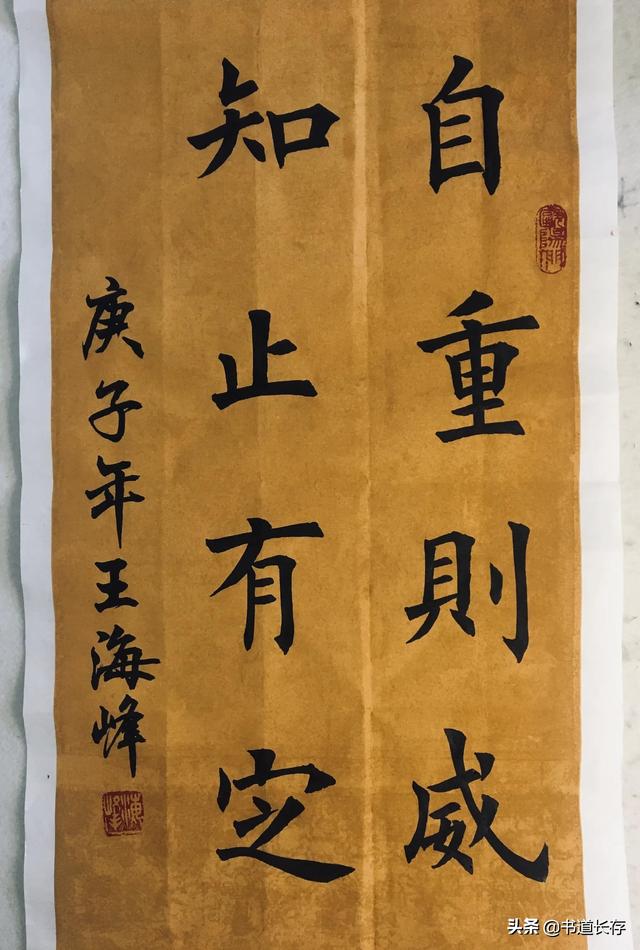 自重則威
知止有定
庚子年王海峰
海峰
头条 @书道长存